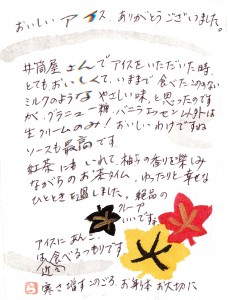 おいしい アイス ありがとうございました。
井筒屋さんでアイスをいただいた時、
とてもおいしくて、いままで食べたことのない
ミルクのような やさしい味、と思ったのです
が、グラニュー糖、バニラエッセンス以外は
生クリームのみ! おいしいわけですね
ソースも最高です
紅茶に いれて 柚子の香りを楽しみ
ながらのお茶タイム、ゆったりと幸せな
ひとときを過しました。絶品の
いいですね
アイスにあんこ
食べるつもりです
寒さ増すこのごろ お身体 お大切に